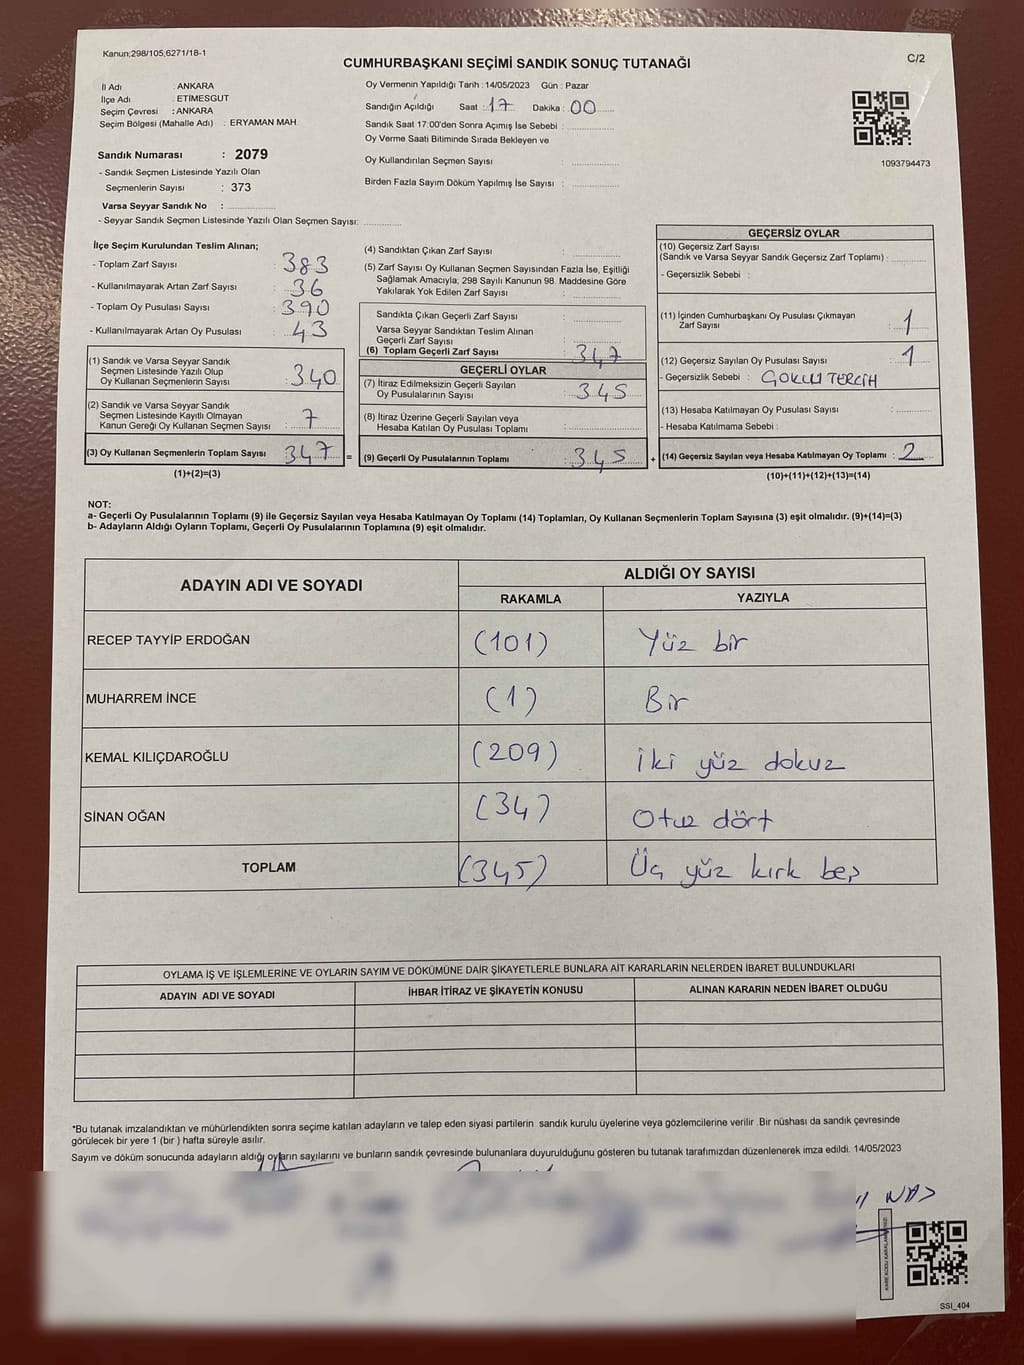 Kanun;298/105;6271/18-1
CUMHURBAŞKANI SEÇİMİ SANDIK SONUÇ TUTANAĞI
C/2
İl Adı : ANKARA
İlçe Adı : ETİMESGUT
Seçim Çevresi : ANKARA
Seçim Bölgesi (Mahalle Adı) : ERYAMAN MAH.
Sandık Numarası : 2079
- Sandık Seçmen Listesinde Yazılı Olan
Seçmenlerin Sayısı : 373
Varsa Seyyar Sandık No :
- Seyyar Sandık Seçmen Listesinde Yazılı Olan Seçmen Sayısı:
Oy Vermenin Yapıldığı Tarih : 14/05/2023 Gün : Pazar
Sandığın Açıldığı Saat : 17 Dakika : 00
Sandık Saat 17:00'den Sonra Açımış İse Sebebi :
Oy Verme Saati Bitiminde Sırada Bekleyen ve
Oy Kullandırılan Seçmen Sayısı :
Birden Fazla Sayım Döküm Yapılmış İse Sayısı :
1093794473
İlçe Seçim Kurulundan Teslim Alınan;
- Toplam Zarf Sayısı : 383
- Kullanılmayarak Artan Zarf Sayısı : 36
- Toplam Oy Pusulası Sayısı : 390
- Kullanılmayarak Artan Oy Pusulası : 43
(1) Sandık ve Varsa Seyyar Sandık
Seçmen Listesinde Yazılı Olup
Oy Kullanan Seçmenlerin Sayısı : 340
(2) Sandık ve Varsa Seyyar Sandık
Seçmen Listesinde Kayıtlı Olmayan
Kanun Gereği Oy Kullanan Seçmen Sayısı : 7
(3) Oy Kullanan Seçmenlerin Toplam Sayısı : 347 =
(1)+(2)=(3)
(4) Sandıktan Çıkan Zarf Sayısı :
(5) Zarf Sayısı Oy Kullanan Seçmen Sayısından Fazla İse, Eşitliği
Sağlamak Amacıyla; 298 Sayılı Kanunun 98. Maddesine Göre
Yakılarak Yok Edilen Zarf Sayısı :
Sandıkta Çıkan Geçerli Zarf Sayısı :
Varsa Seyyar Sandıktan Teslim Alınan
Geçerli Zarf Sayısı :
(6) Toplam Geçerli Zarf Sayısı : 347
GEÇERLİ OYLAR
(7) İtiraz Edilmeksizin Geçerli Sayılan
Oy Pusulalarının Sayısı : 345
(8) İtiraz Üzerine Geçerli Sayılan veya
Hesaba Katılan Oy Pusulası Toplamı :
(9) Geçerli Oy Pusulalarının Toplamı : 345 +
GEÇERSİZ OYLAR
(10) Geçersiz Zarf Sayısı
(Sandık ve Varsa Seyyar Sandık Geçersiz Zarf Toplamı) :
- Geçersizlik Sebebi :
(11) İçinden Cumhurbaşkanı Oy Pusulası Çıkmayan
Zarf Sayısı : 1
(12) Geçersiz Sayılan Oy Pusulası Sayısı : 1
- Geçersizlik Sebebi : TERCİH
(13) Hesaba Katılmayan Oy Pusulası Sayısı :
- Hesaba Katılmama Sebebi :
(14) Geçersiz Sayılan veya Hesaba Katılmayan Oy Toplamı : 2
(10)+(11)+(12)+(13)=(14)
NOT:
a- Geçerli Oy Pusulalarının Toplamı (9) ile Geçersiz Sayılan veya Hesaba Katılmayan Oy Toplamı (14) Toplamları, Oy Kullanan Seçmenlerin Toplam Sayısına (3) eşit olmalıdır. (9)+(14)=(3)
b- Adayların Aldığı Oyların Toplamı, Geçerli Oy Pusulalarının Toplamına (9) eşit olmalıdır.
ADAYIN ADI VE SOYADI
ALDIĞI OY SAYISI
RAKAMLA YAZIYLA
RECEP TAYYİP ERDOĞAN (101) Yüz bir
MUHARREM İNCE (1) Bir
KEMAL KILIÇDAROĞLU (209) İki yüz dokuz
SİNAN OĞAN (34) Otuz dört
TOPLAM (345) Üç yüz kırk beş
OYLAMA İŞ VE İŞLEMLERİNE VE OYLARIN SAYIM VE DÖKÜMÜNE DAİR ŞİKAYETLERLE BUNLARA AİT KARARLARIN NELERDEN İBARET BULUNDUKLARI
ADAYIN ADI VE SOYADI İHBAR İTİRAZ VE ŞİKAYETİN KONUSU ALINAN KARARIN NEDEN İBARET OLDUĞU
*Bu tutanak imzalandıktan ve mühürlendikten sonra seçime katılan adayların ve talep eden siyasi partilerin sandık kurulu üyelerine veya gözlemcilerine verilir. Bir nüshası da sandık çevresinde
görülecek bir yere 1 (bir ) hafta süreyle asılır.
Sayım ve döküm sonucunda adayların aldığı oyların sayılarını ve bunların sandık çevresinde bulunanlara duyurulduğunu gösteren bu tutanak tarafımızdan düzenlenerek imza edildi. 14/05/2023
SSI_404